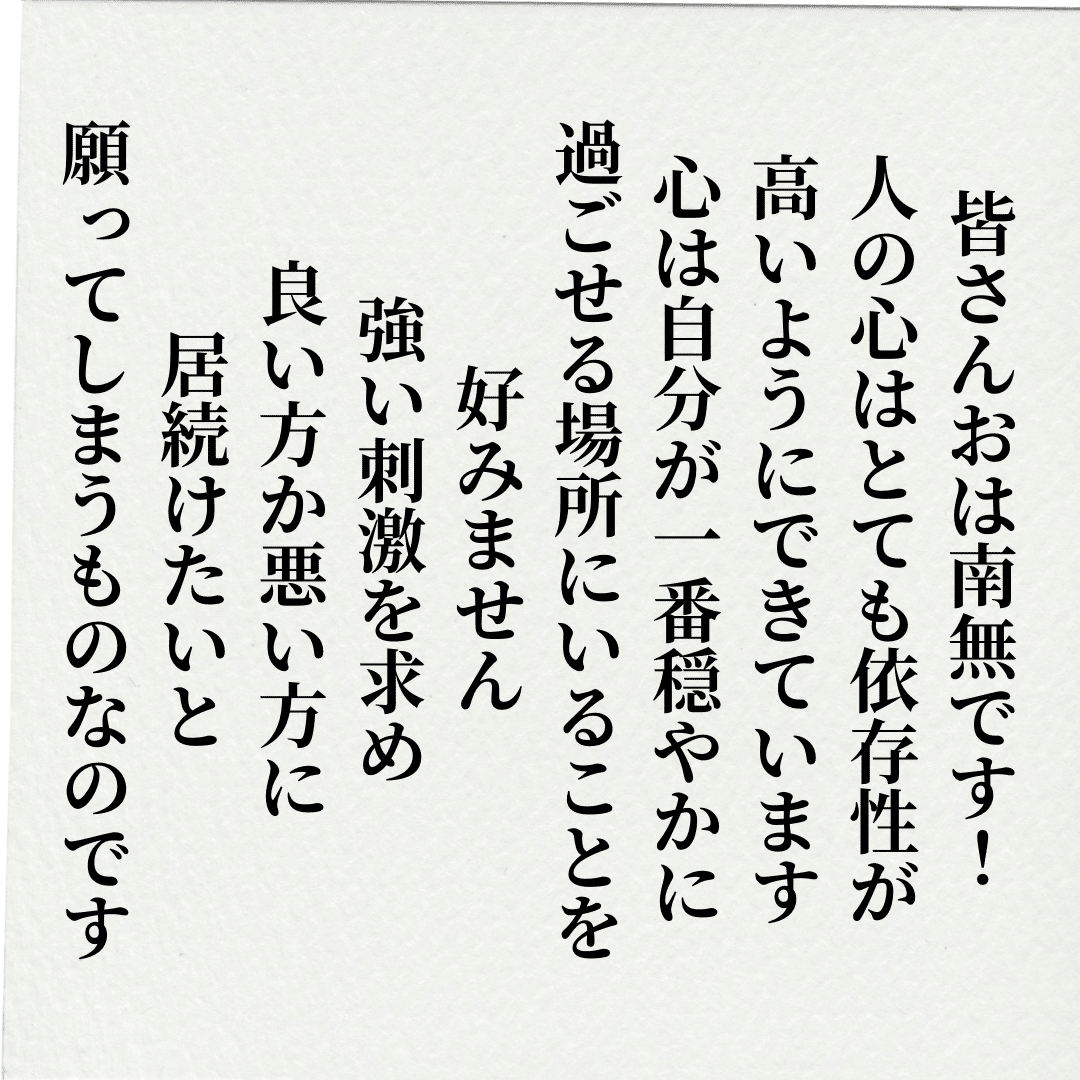 皆さんおは南無です！
人の心はとても依存性が
高いようにできています
心は自分が一番穏やかに
過ごせる場所にいることを
好みません
強い刺激を求め
良い方か悪い方に
居続けたいと
願ってしまうものなのです